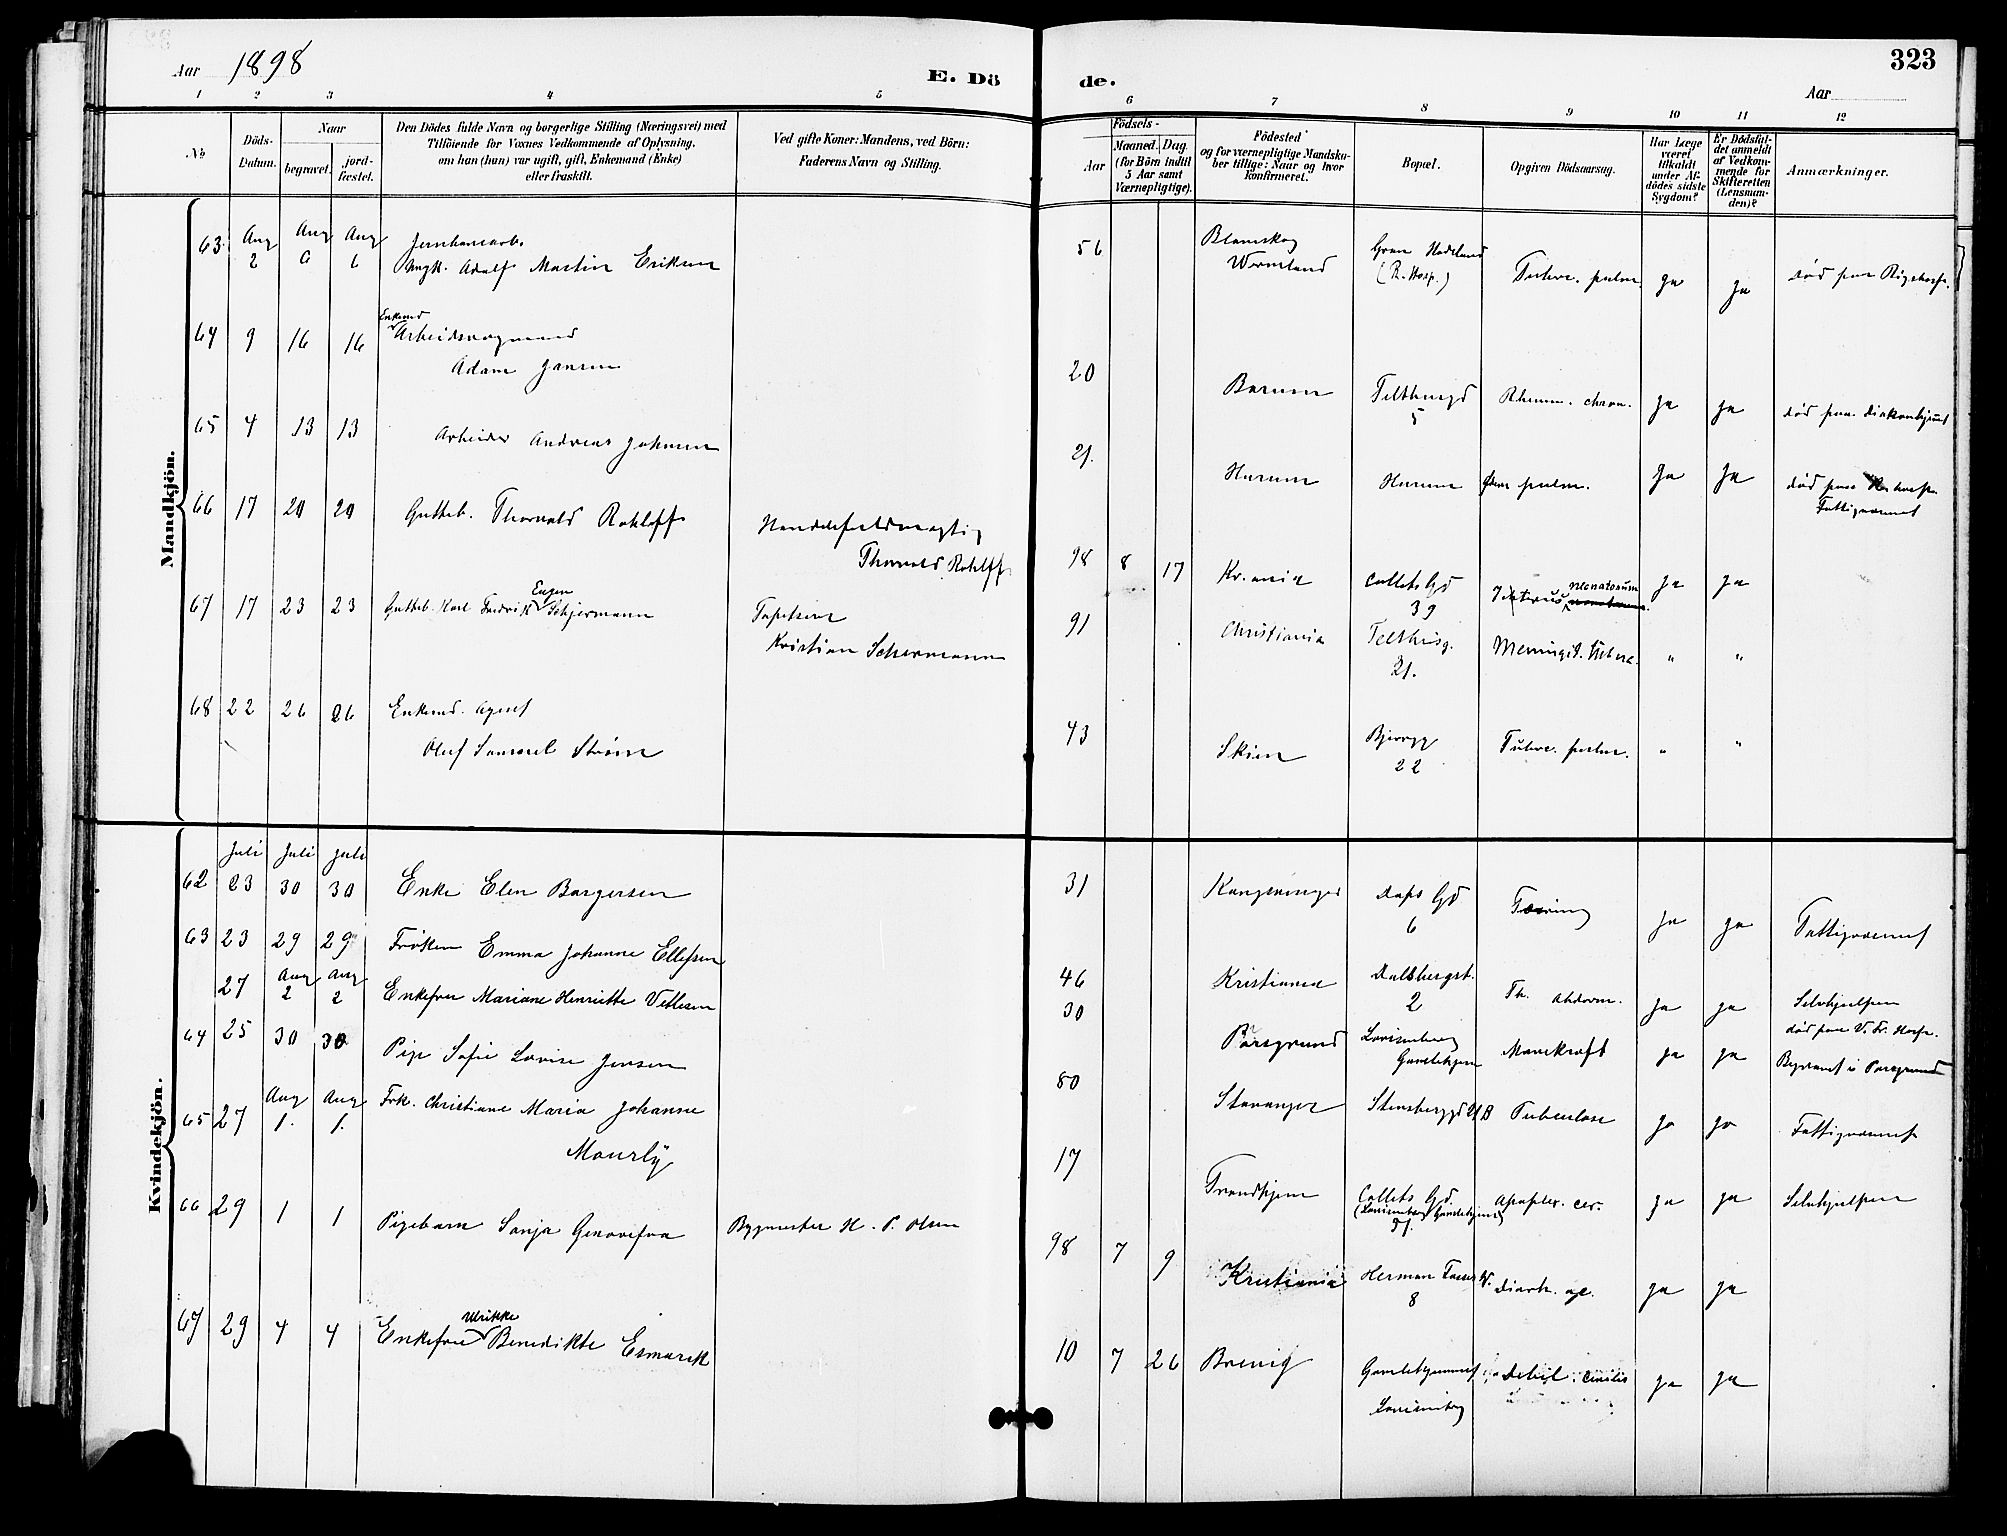 Aar 1898
E. Dö de.
323
Aar
1 2 3 4 5 6 7 8 9 10 11 12
No
Döds-
Datum.
Naar
begravet.
jord-
fæstet.
Den Dödes fulde Navn og borgerlige Stilling (Næringsvei) med
Tilföiende for Voxnes Vedkommende af Oplysning,
om han (hun) var ugift, gift, Enkemand (Enke)
eller fraskilt.
Ved gifte Koner: Mandens, ved Börn:
Faderens Navn og Stilling.
Födsels-
Aar
Maaned. Dag.
(for Börn indtil
5 Aar samt
Værnepligtige).
Födested
og for værnepligtige Mandska-
ber tillige: Naar og hvor
konfirmeret.
Bopæl.
Opgiven Dödsaarsag.
Har Læge
været
tilkaldt
under Af-
dödes sidste
Sygdom?
Er Dödsfal-
det anmeldt
af Vedkom-
mende for
Skifteretten
(Lensman-
den)?
Anmærkninger.
Mandkjön.
63. Aug 2 Aug 6 Aug 6
Ungk. Adolf Martin Eriksen
56 Wermeland Gran Hadeland (R. Hosp.) Tuberc. pulm. ja ja død paa Rigshosp.
64 9 16 16 Enkemd
Arbeidsvognmand
Adam Jansen
20 Bærum Telthusgd 5 Rheum. chron. ja ja død paa Diakonhjemmet
65 4 13 13 Arbeider Andreas Johnsen
21. Hurum Hurum pulm. ja ja død paa
Fattigvæsnet
66 17 20 20 Gutteb. Thorvald Rohloff
Thorvald Rohloff
98 8 17 Kr.ania Colletts Gd 39 Icterus neonatorum ja ja
67 17 23 23 Gutteb. Karl Fredrik Eugen Schjermann
Kristian Schermann
91 Christiania Telthusg. 21. Meningit. tuberc. " "
68 22 26 26 Enkemd. Agent
Oluf Samuel Strøm
43 Skien 22 Tuberc. pulm. " "
Kvindekjön.
Juli Juli Juli
62 23 30 30 Enke Elen Borgersen
31 Kongsvinger Daps Gd 6 Tæring ja ja Fattigvæsnet
63 23 29 29 Frøken Emma Johanne Ellefsen
46 Kristiania Dalsbergst. 2 Tb. abdom. ja ja Selvhjulpen
27 Aug 2 Aug 2 Enkefru Mariane Henriette Vetlesen
30 Porsgrund Lovisenberg Gamlehjem Marekraft ja ja død paa V. Fr. Hosp.
Byvæsnet i Porsgrund
64 25 30 30 Pige Sofie Lovise Jensen
80 Stavanger Stensberggd 21 B Tuberculose ja ja Fattigvæsnet
65 27 Aug 1. Aug 1. Frk. Christiane Maria Johanne
Mourly
17 Trondhjem Colletts Gd. (Lovisenberg Gamlehjem) Apoplex. cer. ja ja Selvhjulpen
66 29 1 1 Pigebarn Sonja Genovefva Bygmester H. P. Olsen
98 7 9 Kristiania Herman Foss 8 Diarh. ac. ja ja
67 29 4 4 Enkefru Ulrikke Benedikte Esmarck
10 7 26 Brevig Gamlehjemmet Lovisenberg Debil. senilis ja ja